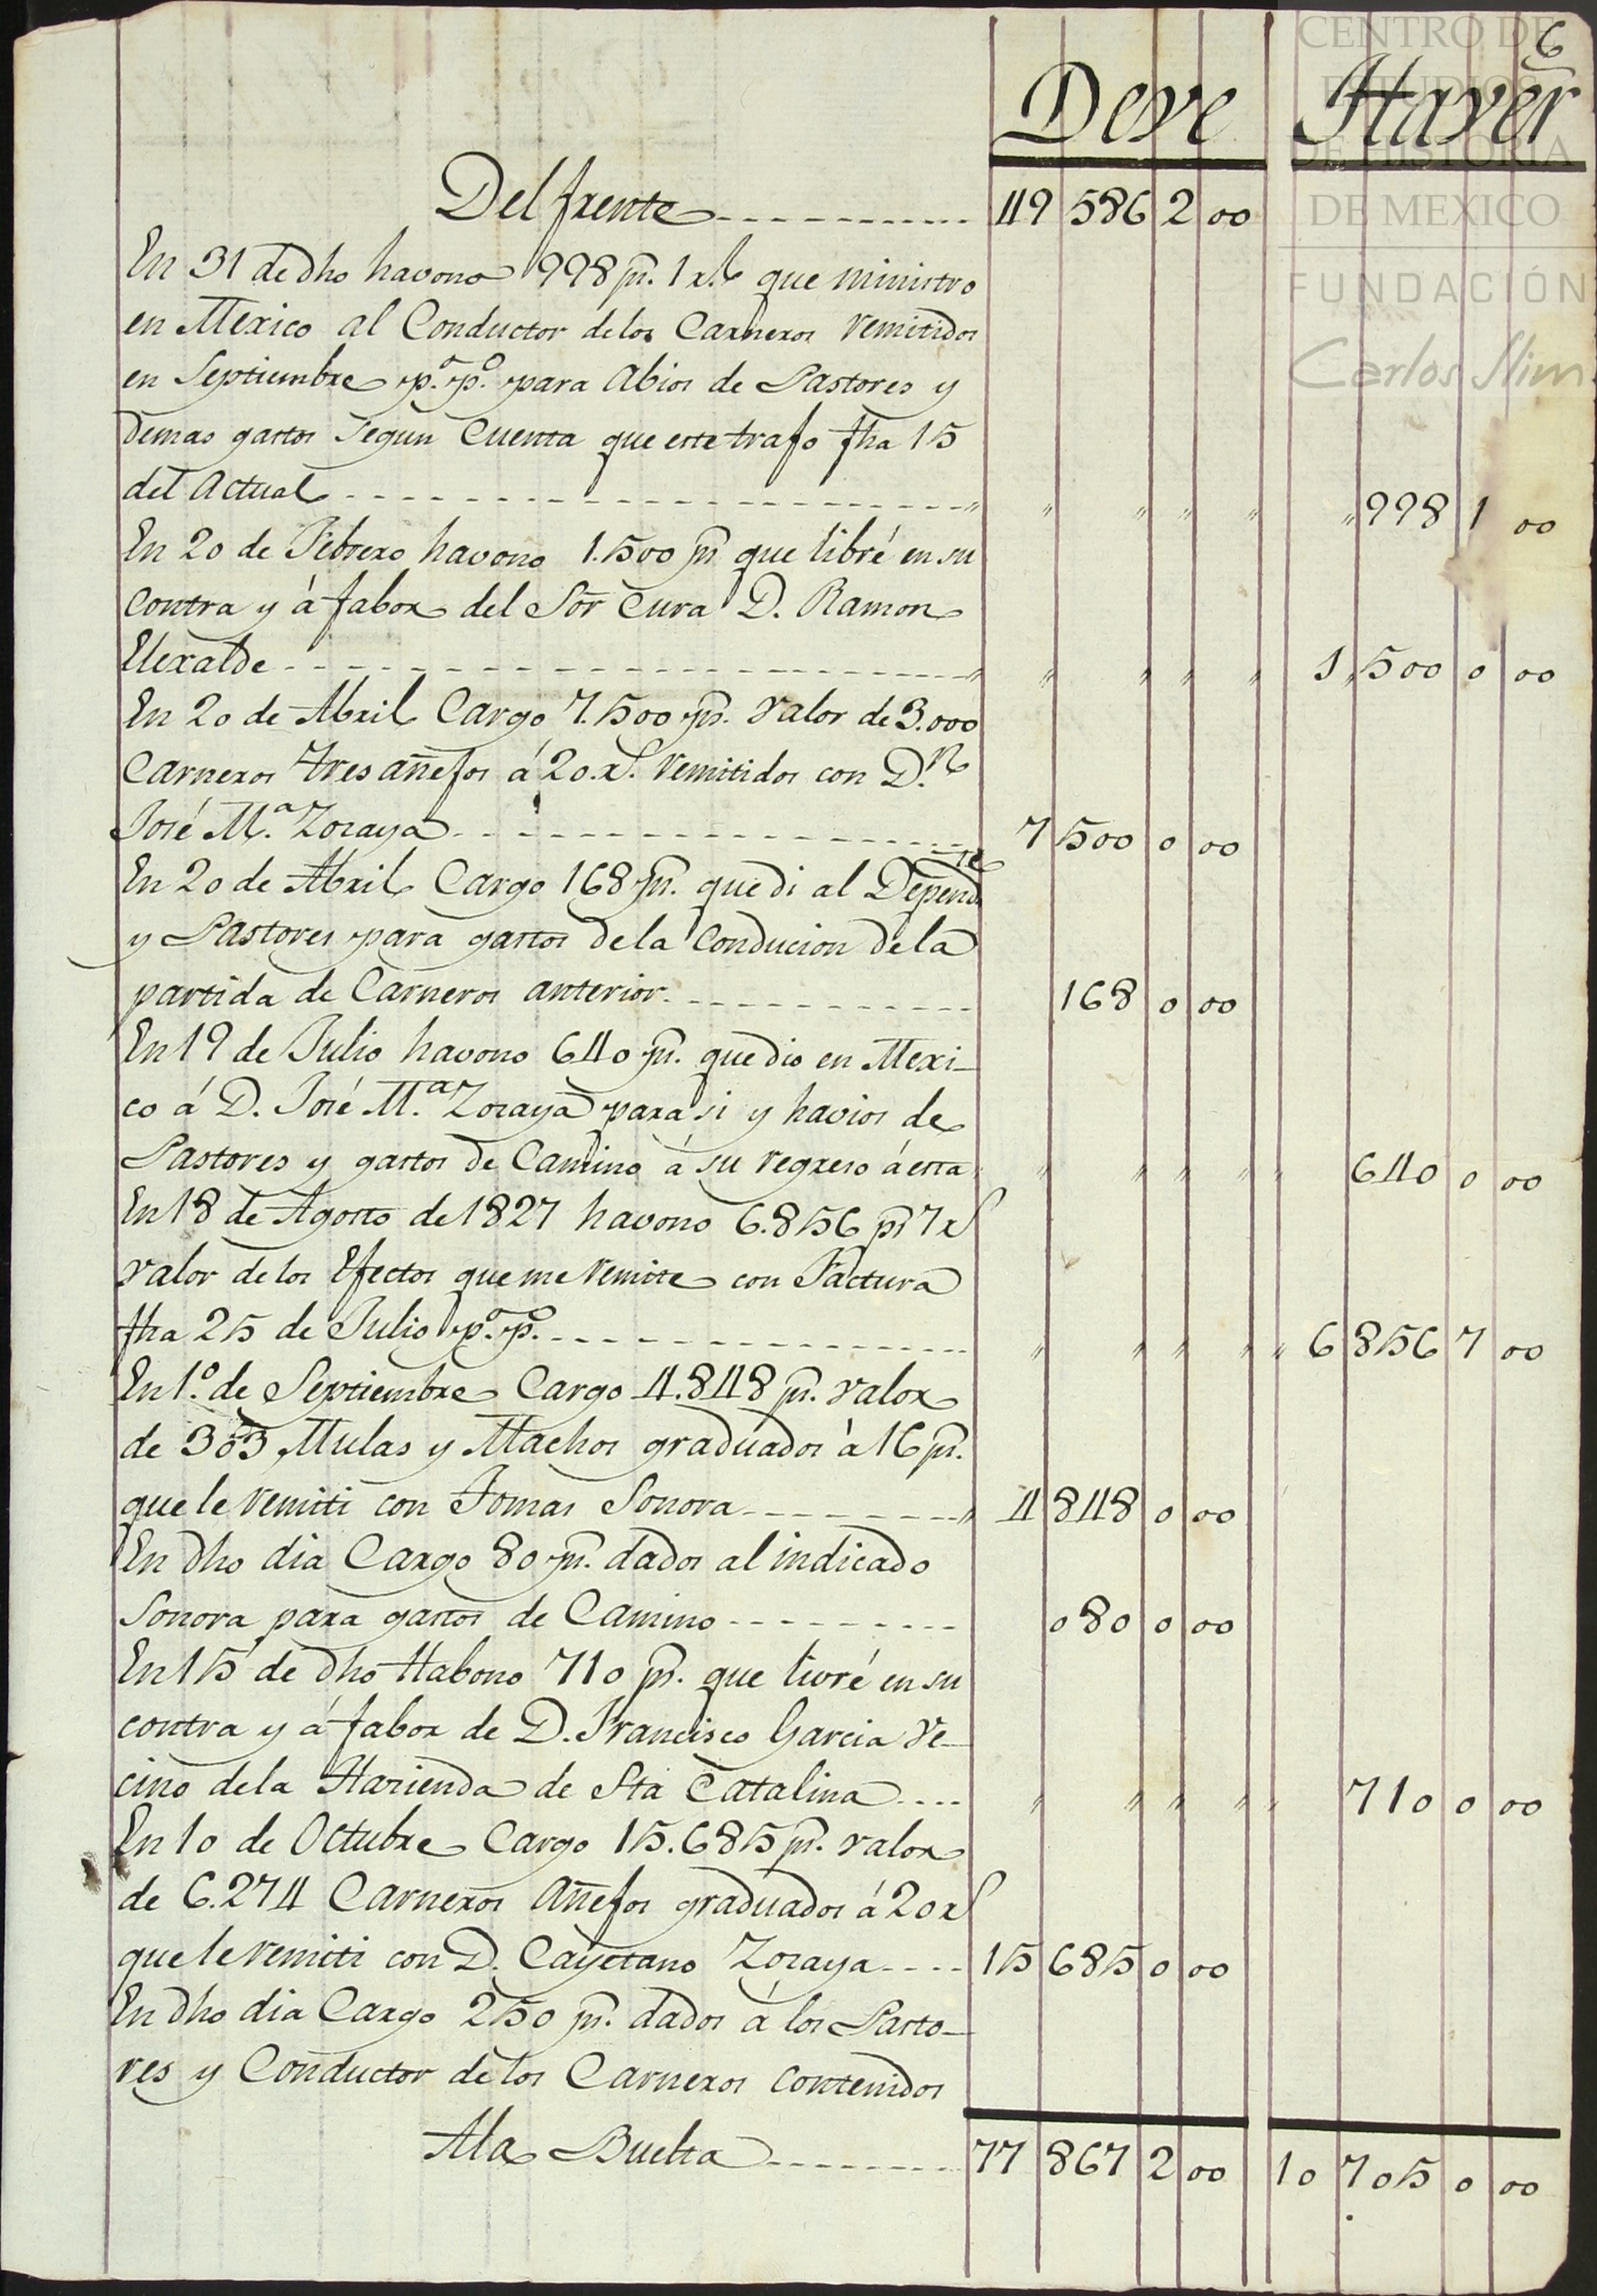 6
CENTRO DE
ESTUDIOS
DE HISTORIA
DE MEXICO
FUNDACIÓN
Carlos Slim
Deve Haver
Del frente 49 586 2 00
En 31 de dho havono 998 ps. 1 rl que ministro
en Mexico al Conductor de los Carneros remitidos
en Septiembre p.o p.o para Abios de Pastores y
demas gastos segun Cuenta que este trajo fha 15
del Actual 998 1 00
En 20 de Febrero havono 1.500 ps que libré en su
contra y á fabor del Sor Cura D. Ramon
Elexalde 1,500 0 00
En 20 de Abril Cargo 7.500 ps. valor de 3.000
Carneros tres añejos á 20 rs. remitidos con D.n
José M.a Zozaya 7 500 0 00
En 20 de Abril Cargo 168 ps. que di al Depend.te
y Pastores para gastos de la Conducion de la
partida de Carneros anterior 168 0 00
En 19 de Julio havono 640 ps. que dio en Mexi-
co á D. José M.a Zozaya para si y havios de
Pastores y gastos de Camino á su regreso á esta 640 0 00
En 18 de Agosto de 1827 havono 6.856 ps 7 rs
valor de los Efectos que me remite con Factura
fha 25 de Julio p.o p.o 6 856 7 00
En 1.o de Septiembre Cargo 4.848 ps. valor
de 303 Mulas y Machos graduados á 16 ps.
que le remiti con Tomas Sonora 4 848 0 00
En dho dia Cargo 80 ps. dados al indicado
Sonora para gastos de Camino 080 0 00
En 15 de dho Habono 710 ps. que livré en su
contra y á fabor de D. Francisco Garcia Ve-
cino de la Hazienda de Sta Catalina 710 0 00
En 10 de Octubre Cargo 15.685 ps. valor
de 6.274 Carneros Añejos graduados á 20 rs
que le remiti con D. Cayetano Zozaya 15 685 0 00
En dho dia Cargo 250 ps. dados á los Pasto-
res y Conductor de los Carneros contenidos
Ala Buelta 77 867 2 00 10 705 0 00